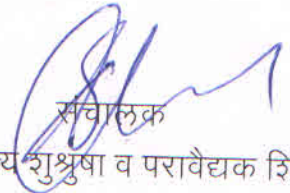 संचालक
य शुश्रुषा व परावैद्यक शि